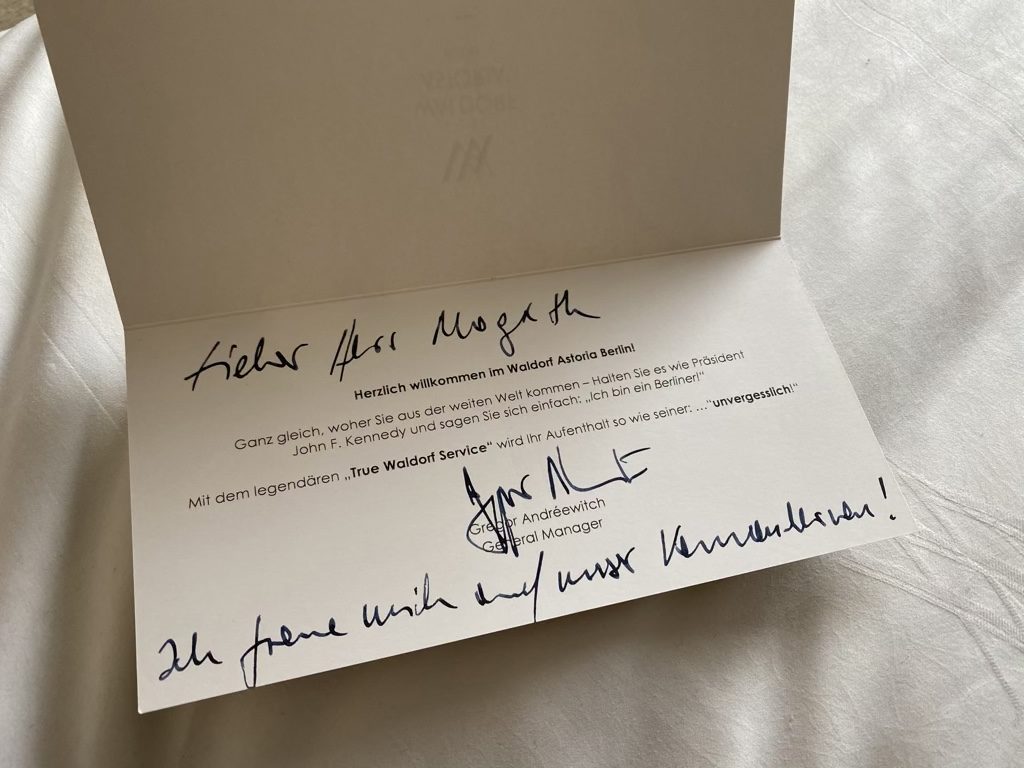 WALDORF
ASTORIA
Lieber Herr Magath
Herzlich willkommen im Waldorf Astoria Berlin!
Ganz gleich, woher Sie aus der weiten Welt kommen – Halten Sie es wie Präsident
John F. Kennedy und sagen Sie sich einfach: „Ich bin ein Berliner!“
Mit dem legendären „True Waldorf Service“ wird Ihr Aufenthalt so wie seiner: ...“unvergesslich!“
Gregor Andréewitch
General Manager
Ich freue mich auf unser Kennenlernen!